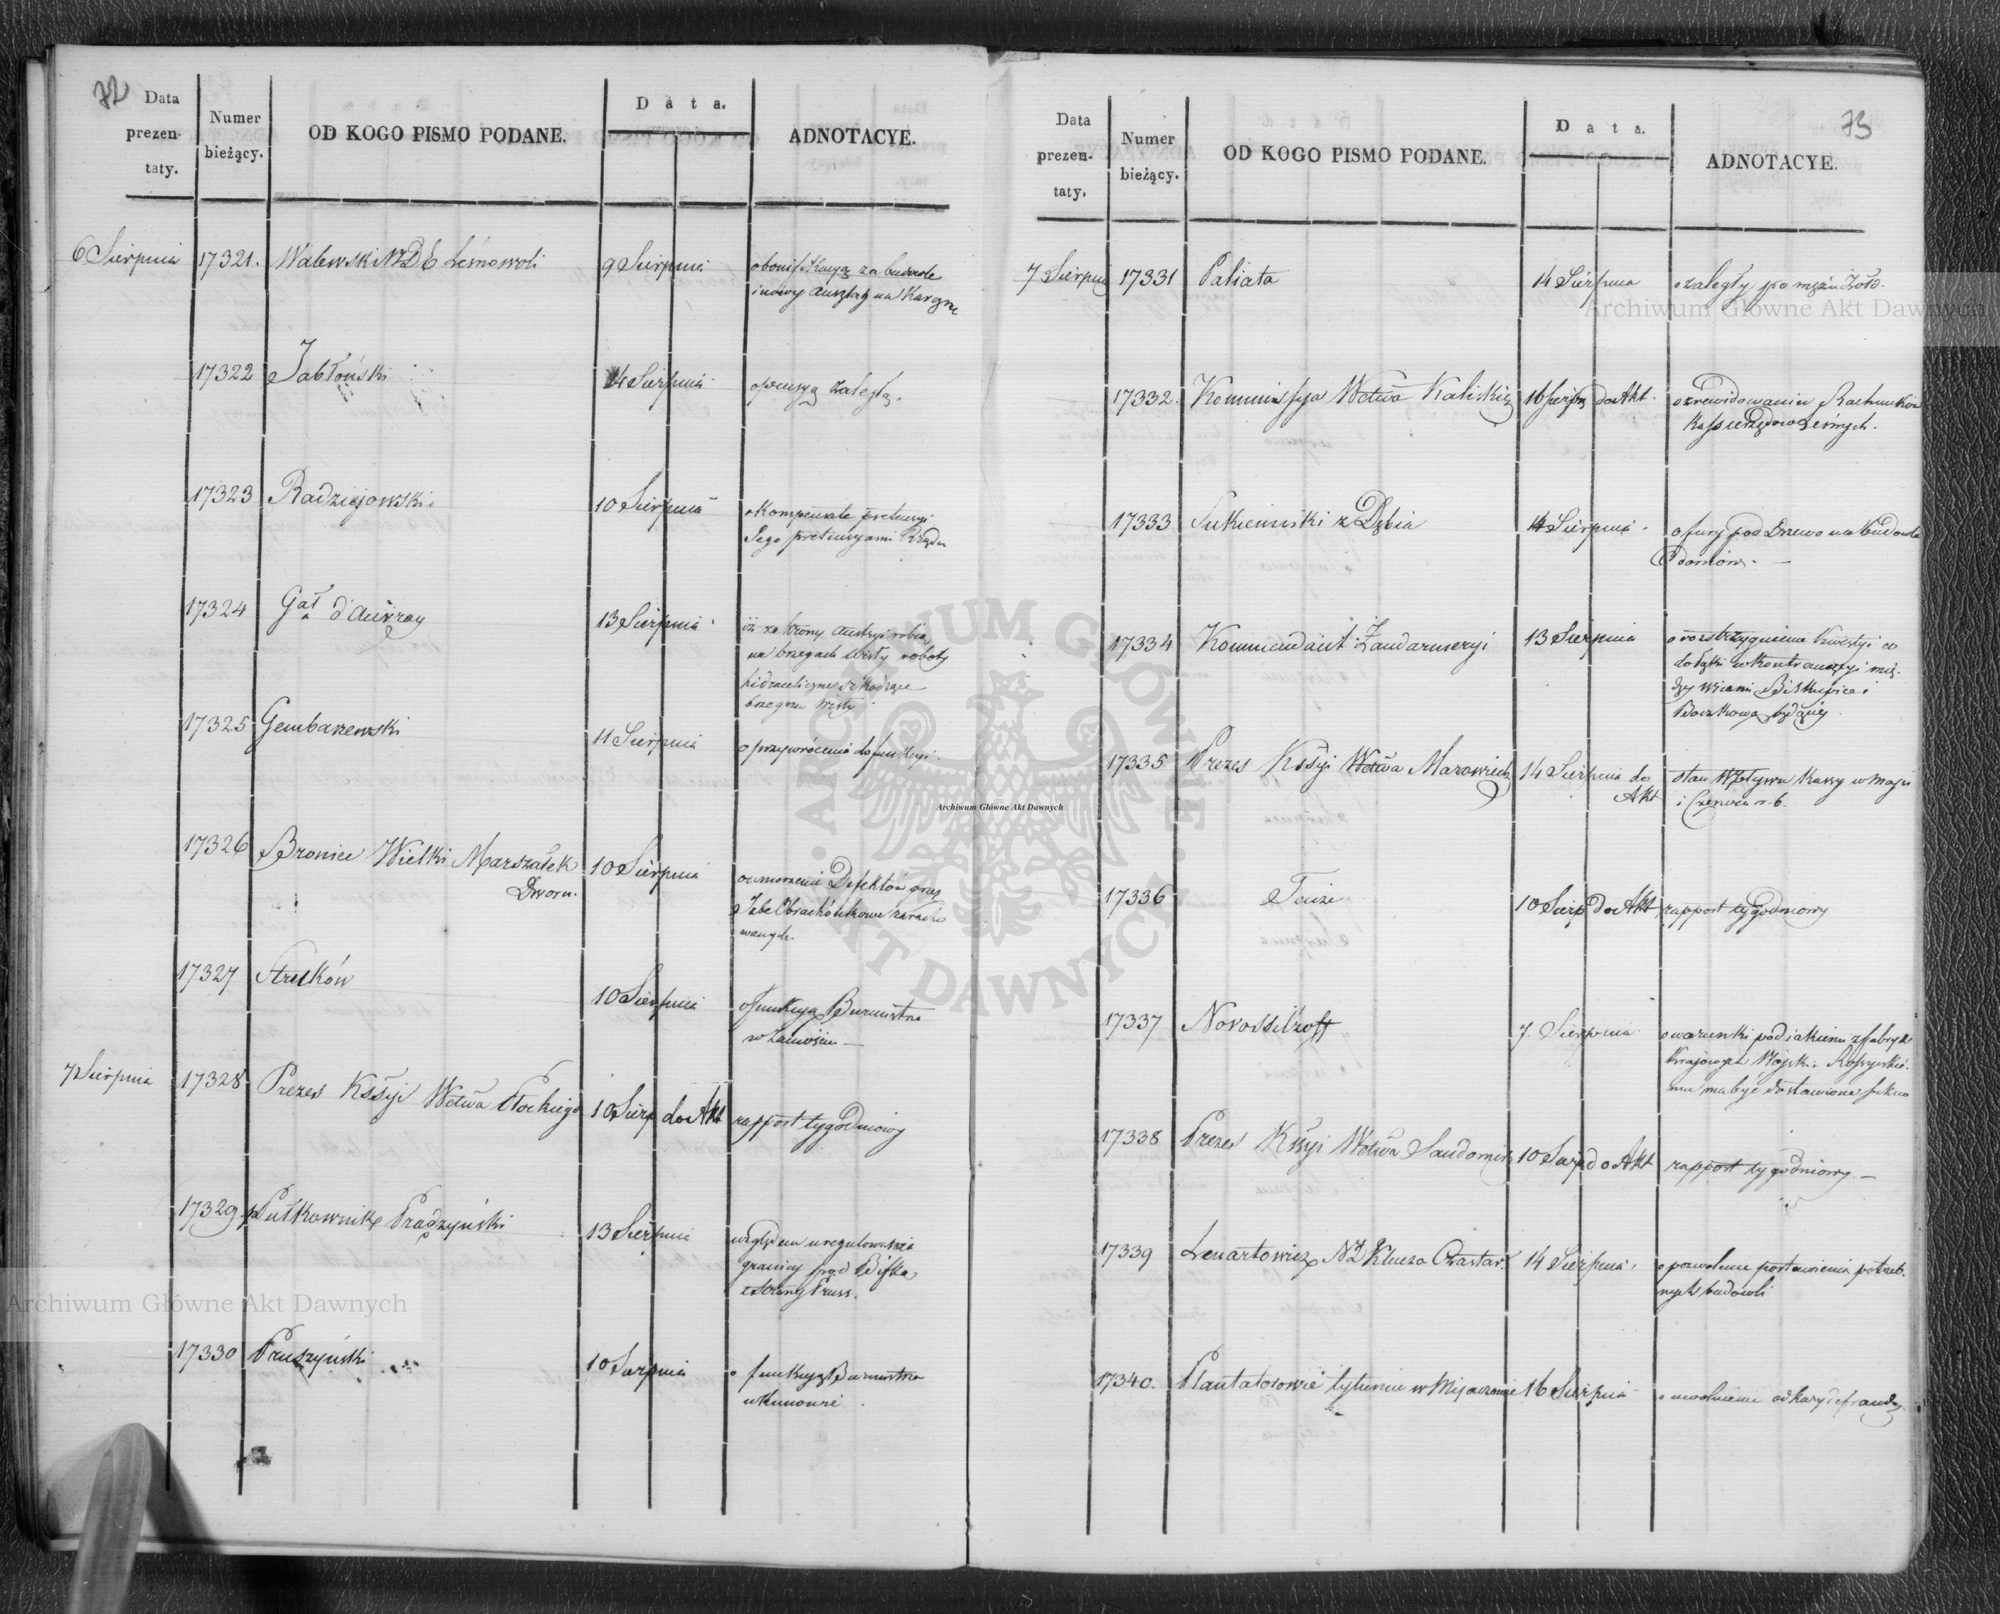 72
Data prezentaty.
Numer bieżący.
OD KOGO PISMO PODANE.
Data.
ADNOTACYE.
6 Sierpnia 17321. Walewski 9 Sierpnia
17322 Jabłoński 14 Sierpnia o pensyą zaległą.
17323 Radziejowski 10 Sierpnia o Kompensatę pretensyi
Jego pretensyami Rządu
17324 Gał d'Auvray 13 Sierpnia iż ze strony Austryi robią
na brzegach Wisły roboty
hidrauliczne szkodzące
brzegom Wisły
17325 Gembarzewski 11 Sierpnia o przywrócenie do funkcyi.
17326 Bronice Wielki Marszałek 10 Sierpnia o umorzenie Defektów przez
Dworu.
Izbę Obrachunkową
17327 10 Sierpnia o funkcyą Burmistrza
w Zamościu
7 Sierpnia 17328 Prezes Kśsyi Wdtwa Płockiego 10 Sierp do Akt rapport tygodniowy
17329 Pułkownik Prądzyński 13 Sierpnia względem uregulowania
granicy pod
z strony Pruss.
17330 Pruszyński 10 Sierpnia o funkcyą Burmistrza
73
Data prezentaty.
Numer bieżący.
OD KOGO PISMO PODANE.
Data.
ADNOTACYE.
7 Sierpnia 17331 Paliata 14 Sierpnia o zaległy po mężu Żołd.
17332. Kommissya Wdtwa Kaliskie 16 Sierp do Akt. o zrewidowaniu Rachunków
Kass Leśnych.
17333 Sukiennicki z Dąbia 14 Sierpnia o fury pod Drzewo na budowlę
domów.
17334 Kommendant Żandarmeryi 13 Sierpnia o rozstrzygnienie kwestyi co
do łąki w kontrawersyi mię-
dzy wsiami Biskupice i
Boczkowa będącéj
17335 Prezes Kśsyi Wdtwa Mazowieck 14 Sierpnia do stan Wpływu Kassy w Maju
Akt
i Czerwcu r. b.
17336 Tenże 10 Sierp do Akt rapport tygodniowy
17337 Novossilzoff 7. Sierpnia o warunki pod jakiemi z fabryk
Krajowych Wojsku Rossyiskie-
mu ma być dostawione sukno
17338 Prezes Kśsyi Wdtwa Sandomir 10 Sierp do Akt rapport tygodniowy.
17339 Lenartowicz 14 Sierpnia o pozwolenie postawienia potrzeb-
nych budowli
17340. Plantatorowie tytuniu w 16 Sierpnia o uwolnienie od kary defraud.
Archiwum Główne Akt Dawnych
Archiwum Główne Akt Dawnych
Archiwum Główne Akt Dawnych
ARCHIWUM GŁÓWNE · AKT DAWNYCH ·